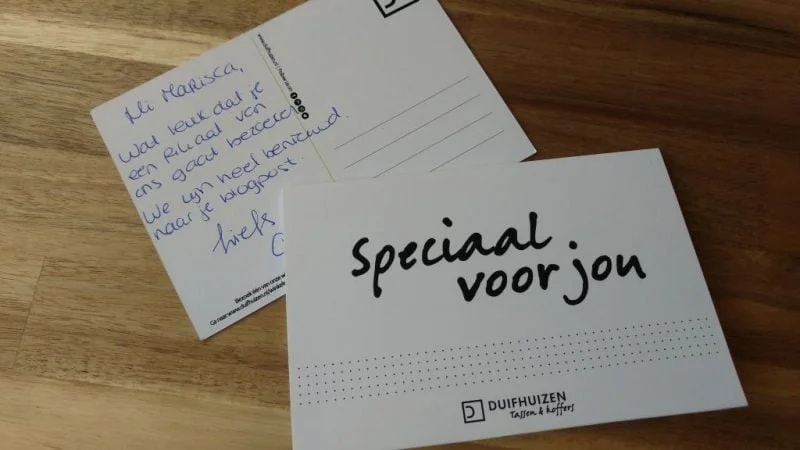 Hi Marisca,
Wat leuk dat je
een filiaal van
ons gaat bezoeken.
We zijn heel benieuwd
naar je blogpost.
liefs
Bezoek één van onze
Ga naar www.duifhuizen.nl/winkels
www.duifhuizen.nl
Speciaal
voor jou
DUIFHUIZEN
Tassen & koffers